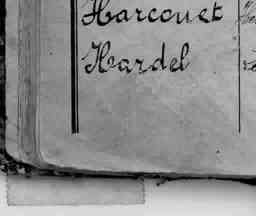 Harcouet
Hardel